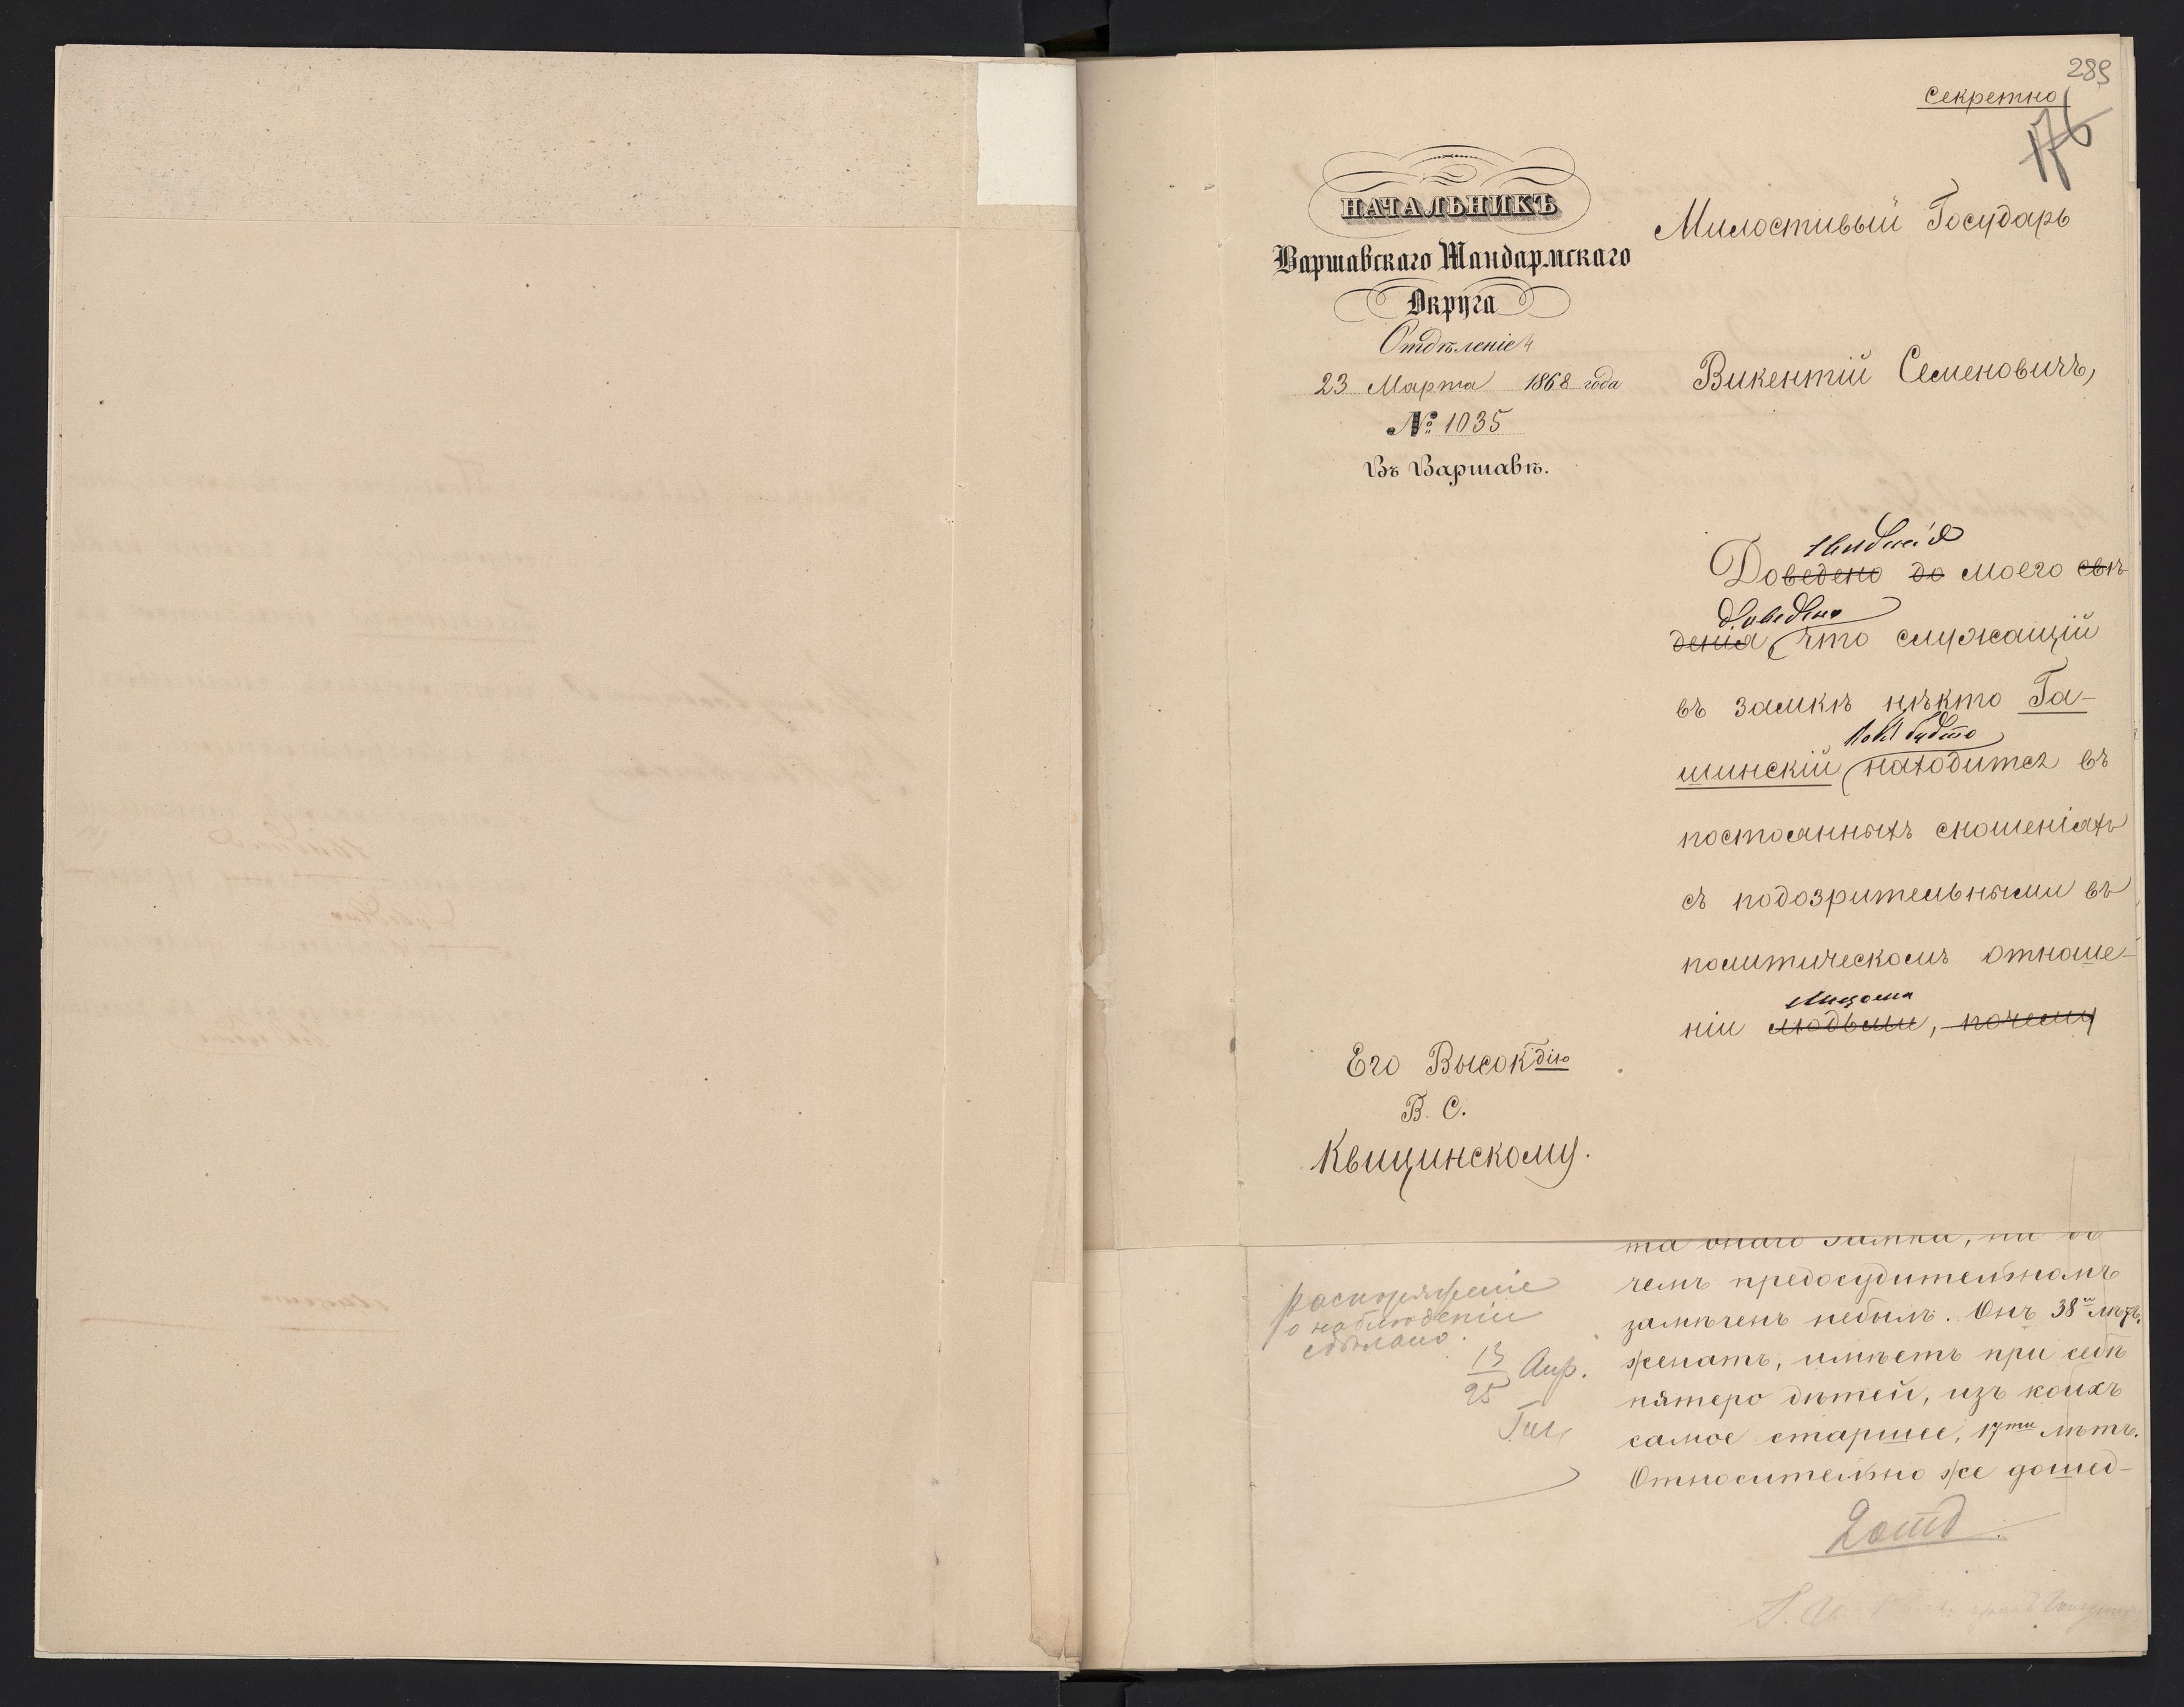 289
Секретно
176
НАЧАЛЬНИКЪ
Варшавскаго Жандармскаго
Округа
Отдѣленіе 4
23 Марта 1868 года
№ 1035
Въ Варшавѣ.
Милостивый Государь
Викентій Семеновичъ,
свѣденія
Доведено до моего свѣ-
доведено
денія что служащій
въ замкѣ нѣкто Га-
какъ будто
шинскій находится въ
постоянныхъ сношеніяхъ
съ подозрительными въ
политическомъ отноше-
лицами
ніи людьми, почему
Его Высокдію
В. С.
Квицинскому.
та онаго замка, ни въ
чемъ предосудительномъ
замѣченъ небылъ. Онъ 38и лѣтъ,
женатъ, имѣетъ при себѣ
пятеро дѣтей, изъ коихъ
самое старшее, 17ти лѣтъ.
Относительно же дошед-
Распоряженіе
о наблюденіи
сдѣлано.
13/25 Апр.
2 отд.